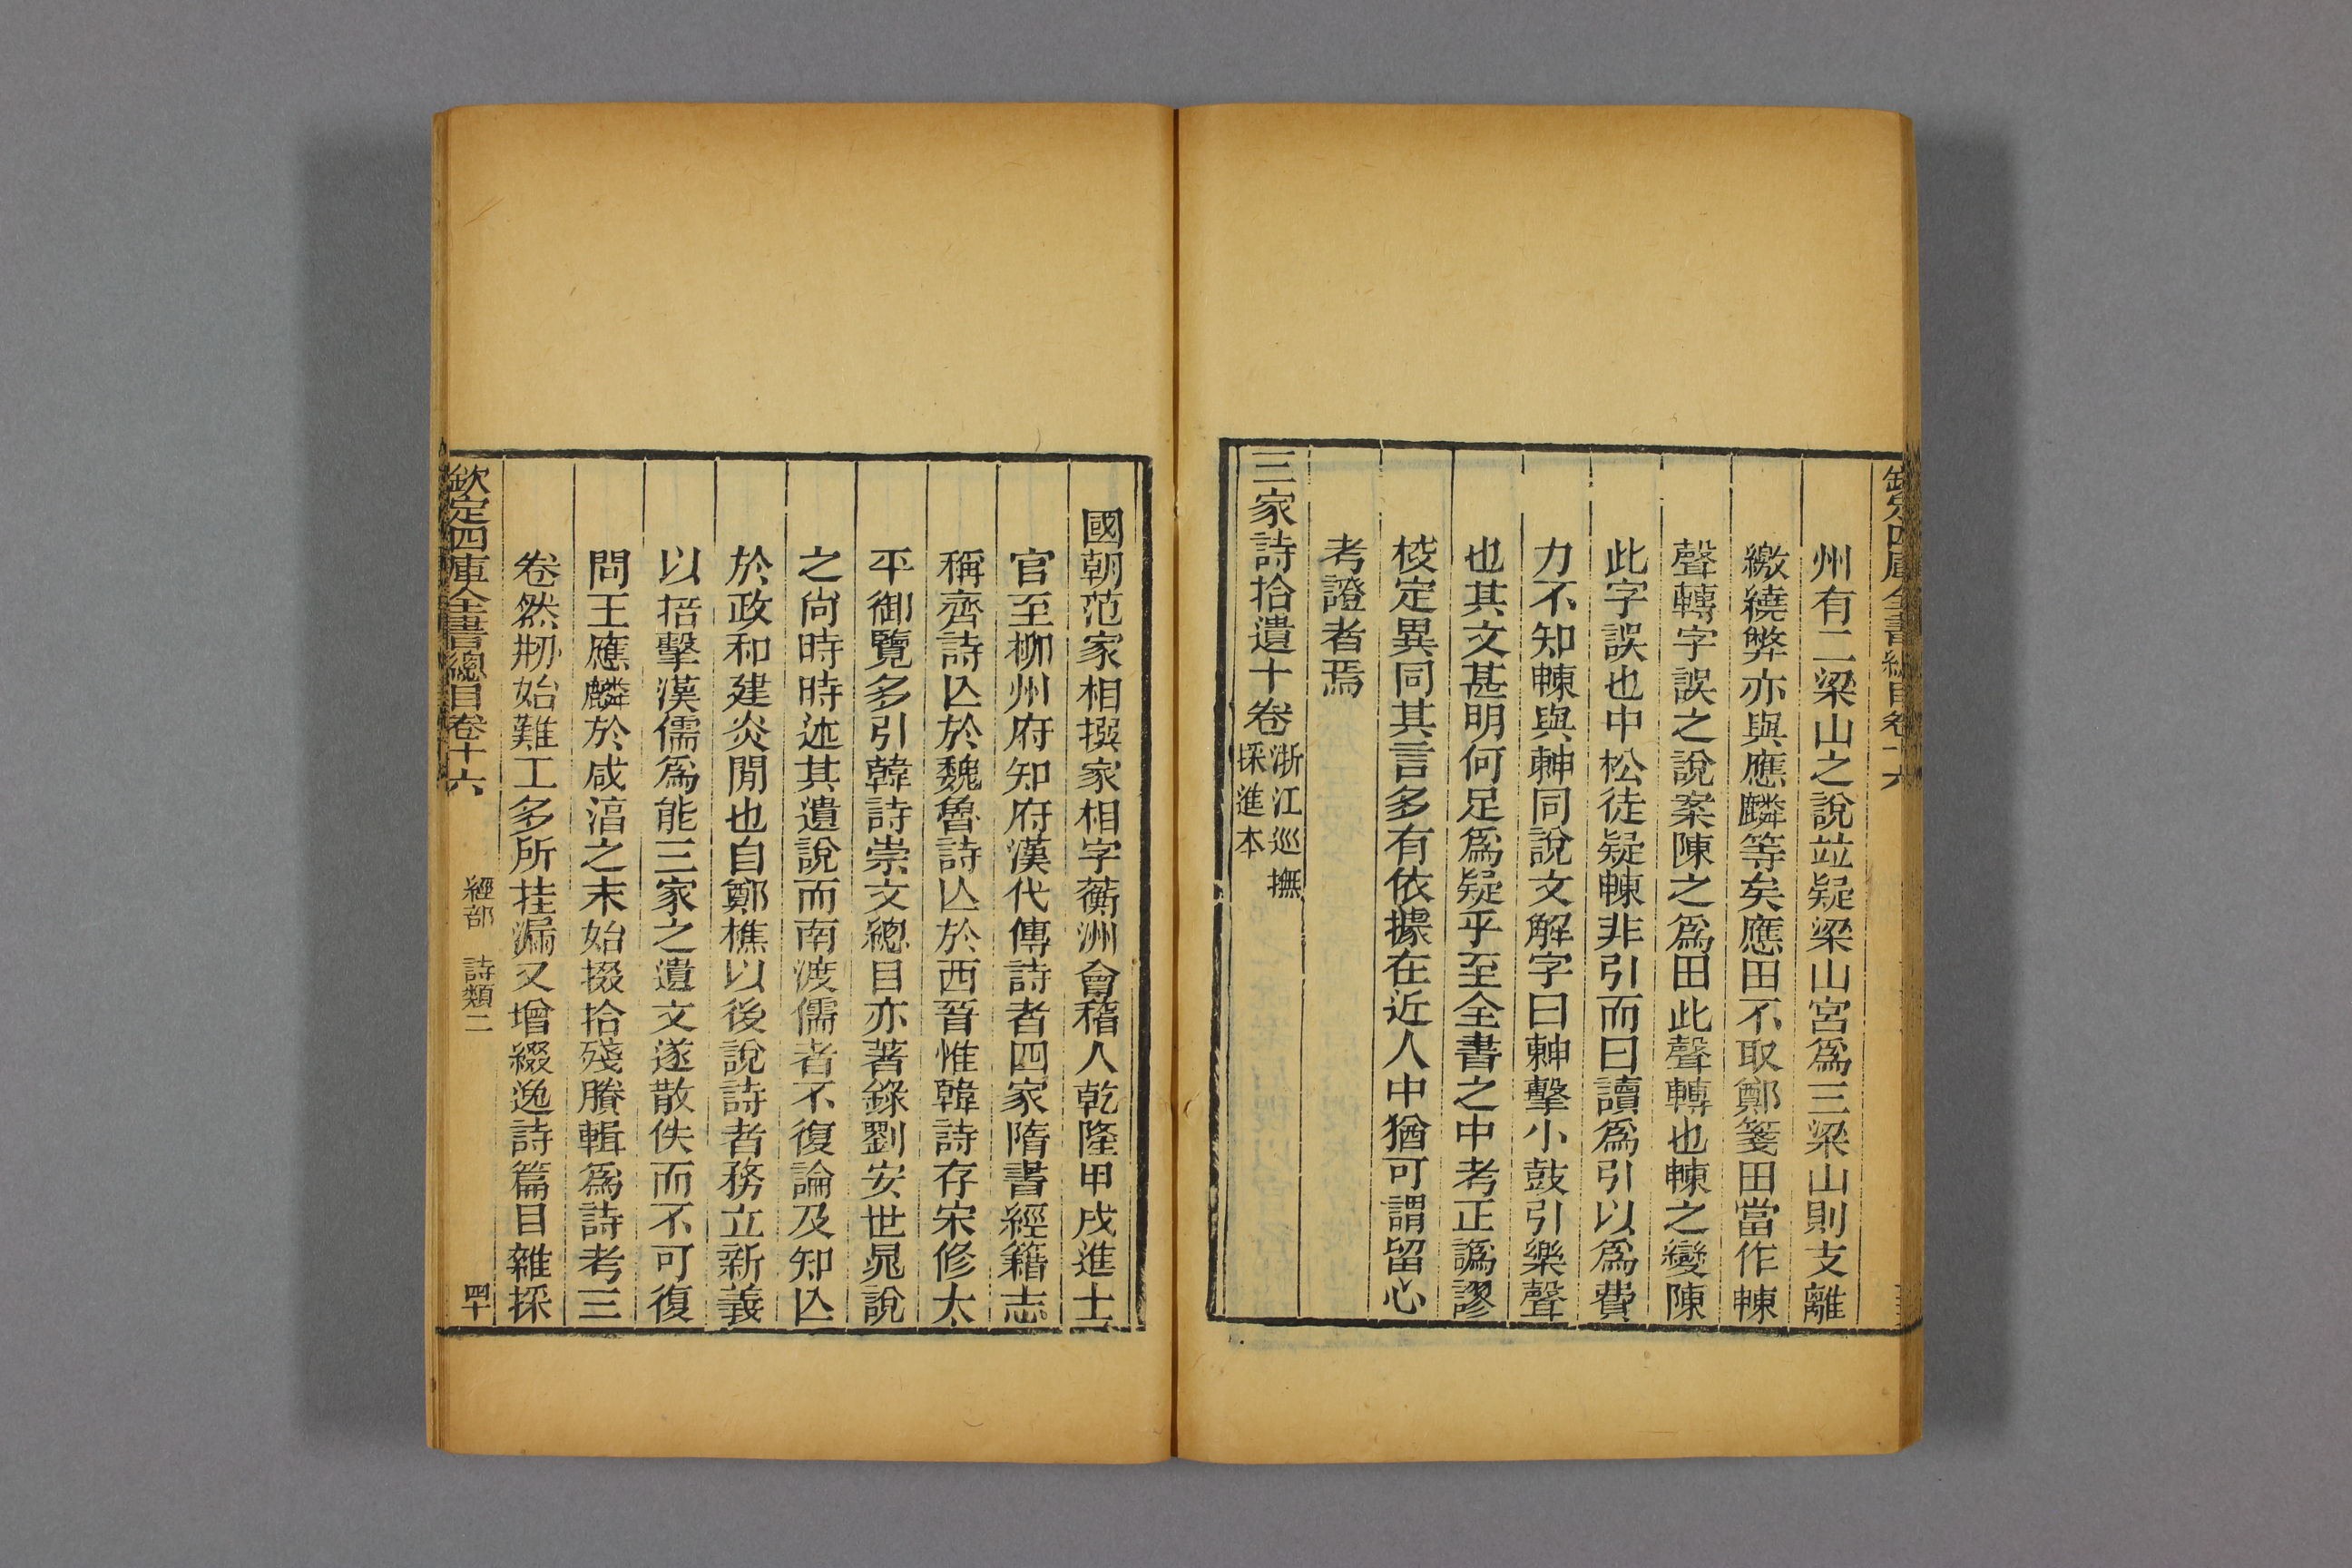 欽定四庫全書總目卷十六
州有二梁山之說竝疑梁山宮爲三梁山則支離
繳繞弊亦與應麟等矣應田不取鄭箋田當作朄
聲轉字誤之說案陳之爲田此聲轉也朄之變陳
此字誤也中松徒疑朄非引而曰讀爲引以爲費
力不知朄與𣌾同說文解字曰𣌾擊小鼓引樂聲
也其文甚明何足爲疑乎至全書之中考正譌謬
校定異同其言多有依據在近人中猶可謂留心
考證者焉
三家詩拾遺十卷浙江巡撫
採進本
國朝范家相撰家相字蘅洲會稽人乾隆甲戌進士
官至柳州府知府漢代傳詩者四家隋書經籍志
稱齊詩亾於魏魯詩亾於西晉惟韓詩存宋修太
平御覽多引韓詩崇文總目亦著錄劉安世晁說
之尙時時述其遺說而南渡儒者不復論及知亾
於政和建炎閒也自鄭樵以後說詩者務立新義
以掊擊漢儒爲能三家之遺文遂散佚而不可復
問王應麟於咸淳之末始掇拾殘賸輯爲詩考三
卷然刱始難工多所挂漏又增綴逸詩篇目雜採
欽定四庫全書總目卷十六
經部 詩類二
四十